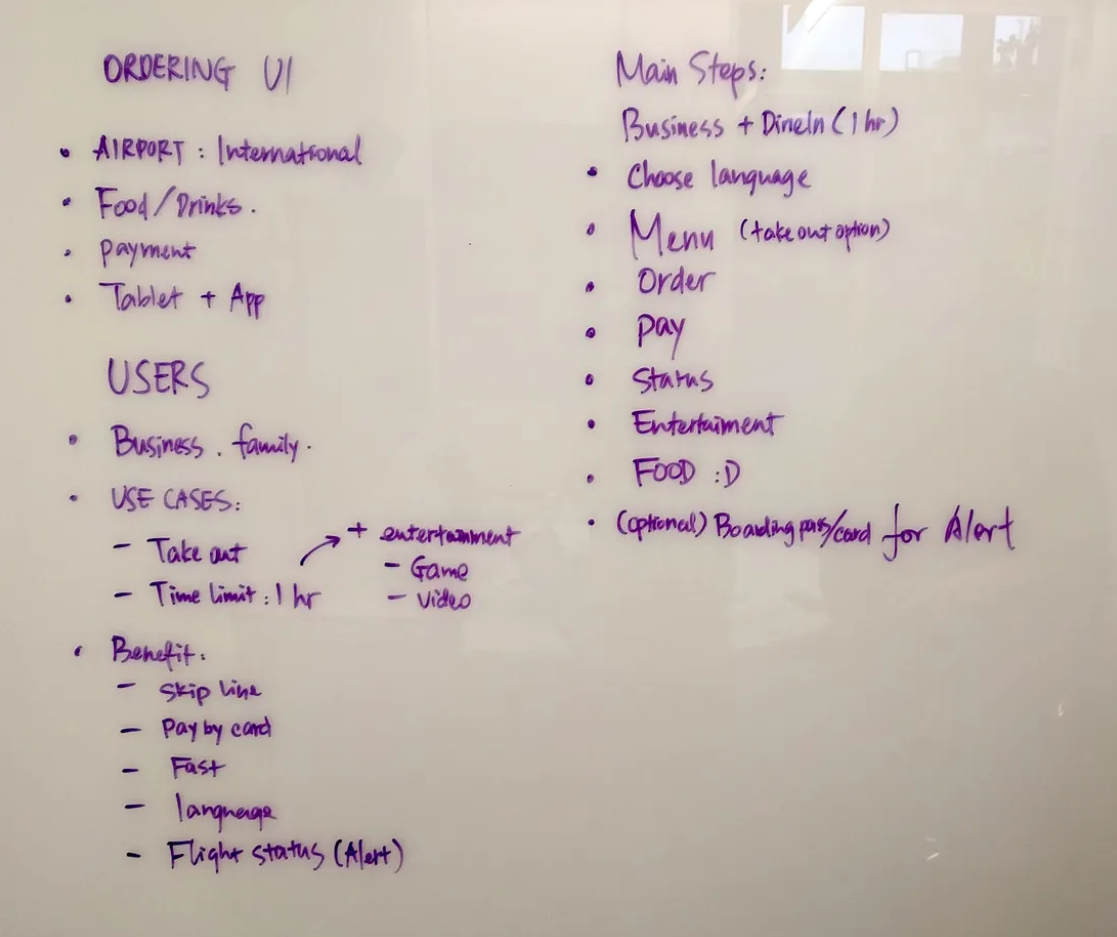 ORDERING UI
• AIRPORT : International
• Food/Drinks.
• payment
• Tablet + App
USERS
• Business . family.
• USE CASES:
– Take out
– Time limit : 1 hr
+ entertainment
– Game
– Video
• Benefit:
– Skip line
– Pay by card
– Fast
– language
– Flight status (Alert)
Main Steps:
Business + DineIn (1 hr)
• Choose language
• Menu (take out option)
• Order
• Pay
• Status
• Entertaiment
• FOOD :D
• (optional) Boarding pass/card for Alert